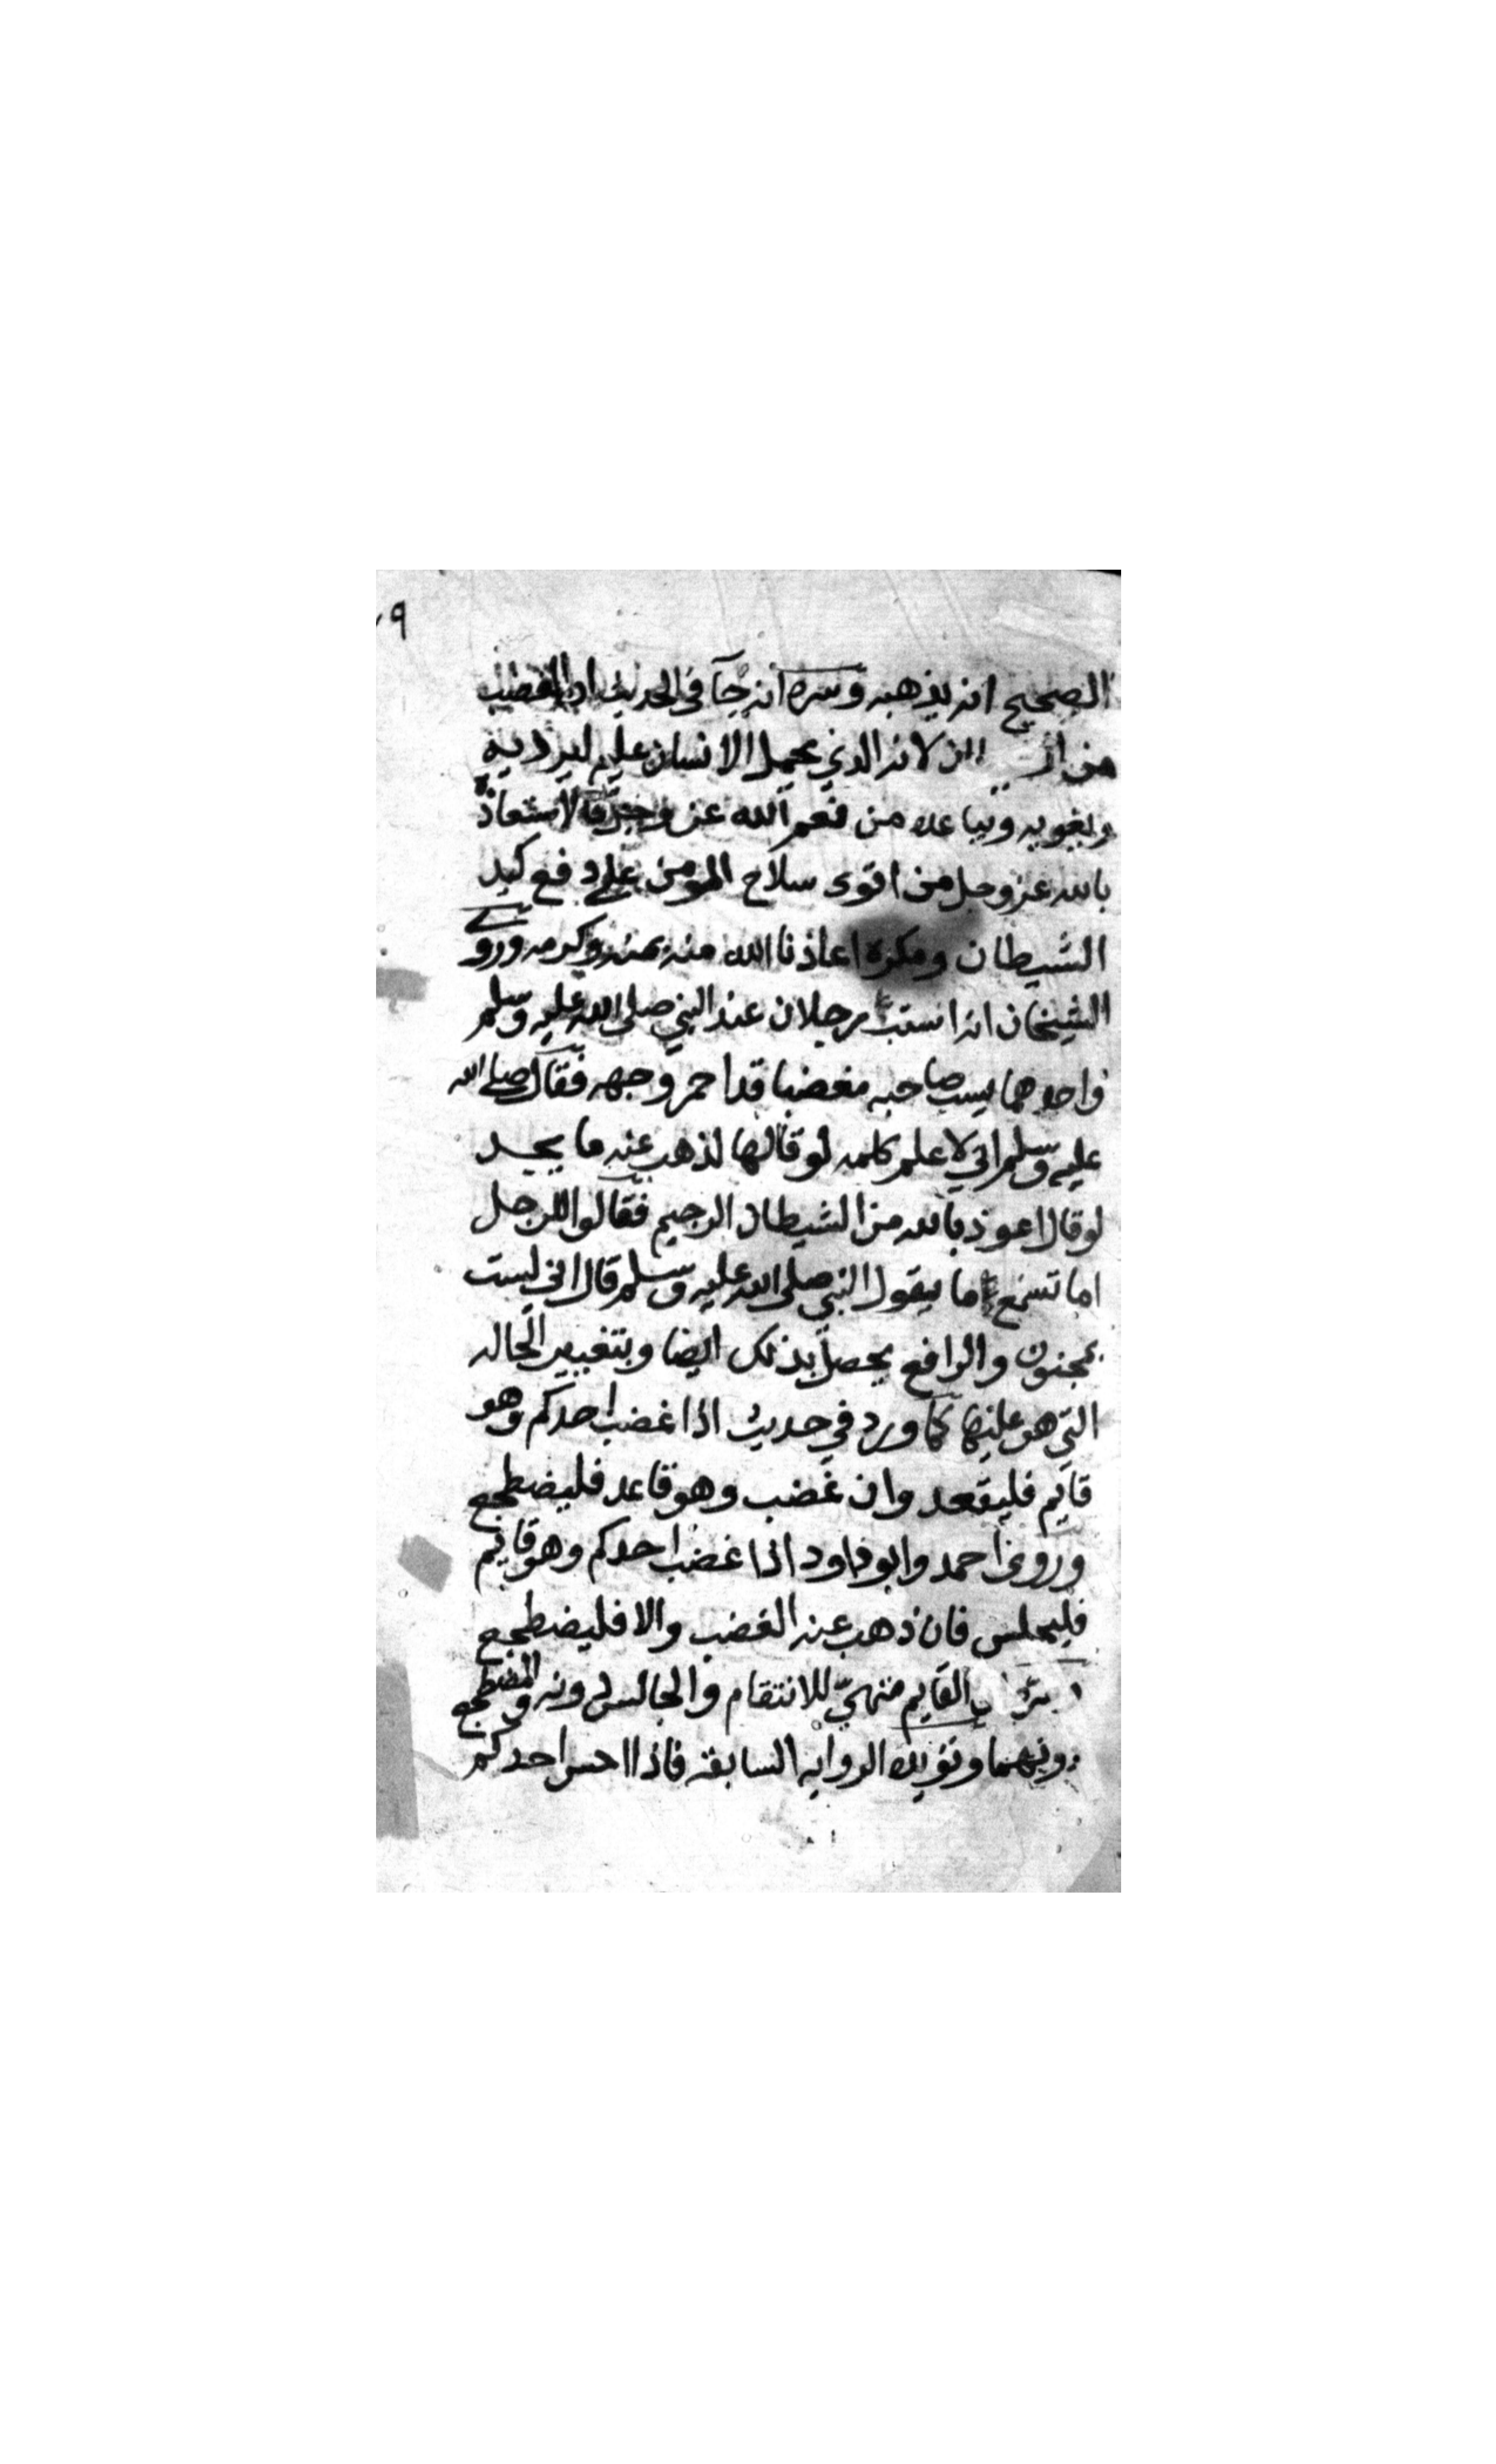 ٩
الصحيح انه يذهبه وسره انه جآ في الحديث ان الغضب
من لانه الذي يحمل الانسان عليه ليرديه
ويغويه ويباعده من نعم الله عز وجل فالاستعاذة
بالله عز وجل من اقوى سلاح المومن علي دفع كيد
الشيطان ومكره اعاذنا الله منه بمنه وكرمه وروي
الشيخان انه استب رجلان عند النبي صلى الله عليه وسلم
واحدهما يسب صاحبه مغضبا قد احمر وجهه فقال صلى الله
عليه وسلم اني لاعلم كلمه لو قالها لذهب عنه ما يجد
لو قال اعوذ بالله من الشيطان الرجيم فقالوا للرجل
اما تسمع ما يقول النبي صلى الله عليه وسلم قال اني ليست
بمجنون والرافع يحصل بذلك ايضا وبتغيير الحاله
التي هو عليها كما ورد في حديث اذا غضب احدكم وهو
قايم فليقعد وان غضب وهو قاعد فليضطجع
وروى احمد وابو داود اذا غضب احدكم وهو قايم
فليجلس فان ذهب عنه الغضب والا فليضطجع
القايم متهيّ للانتقام والجالس دونه والمضطجع
دونهما وتؤيده الروايه السابقه فاذا احس احدكم